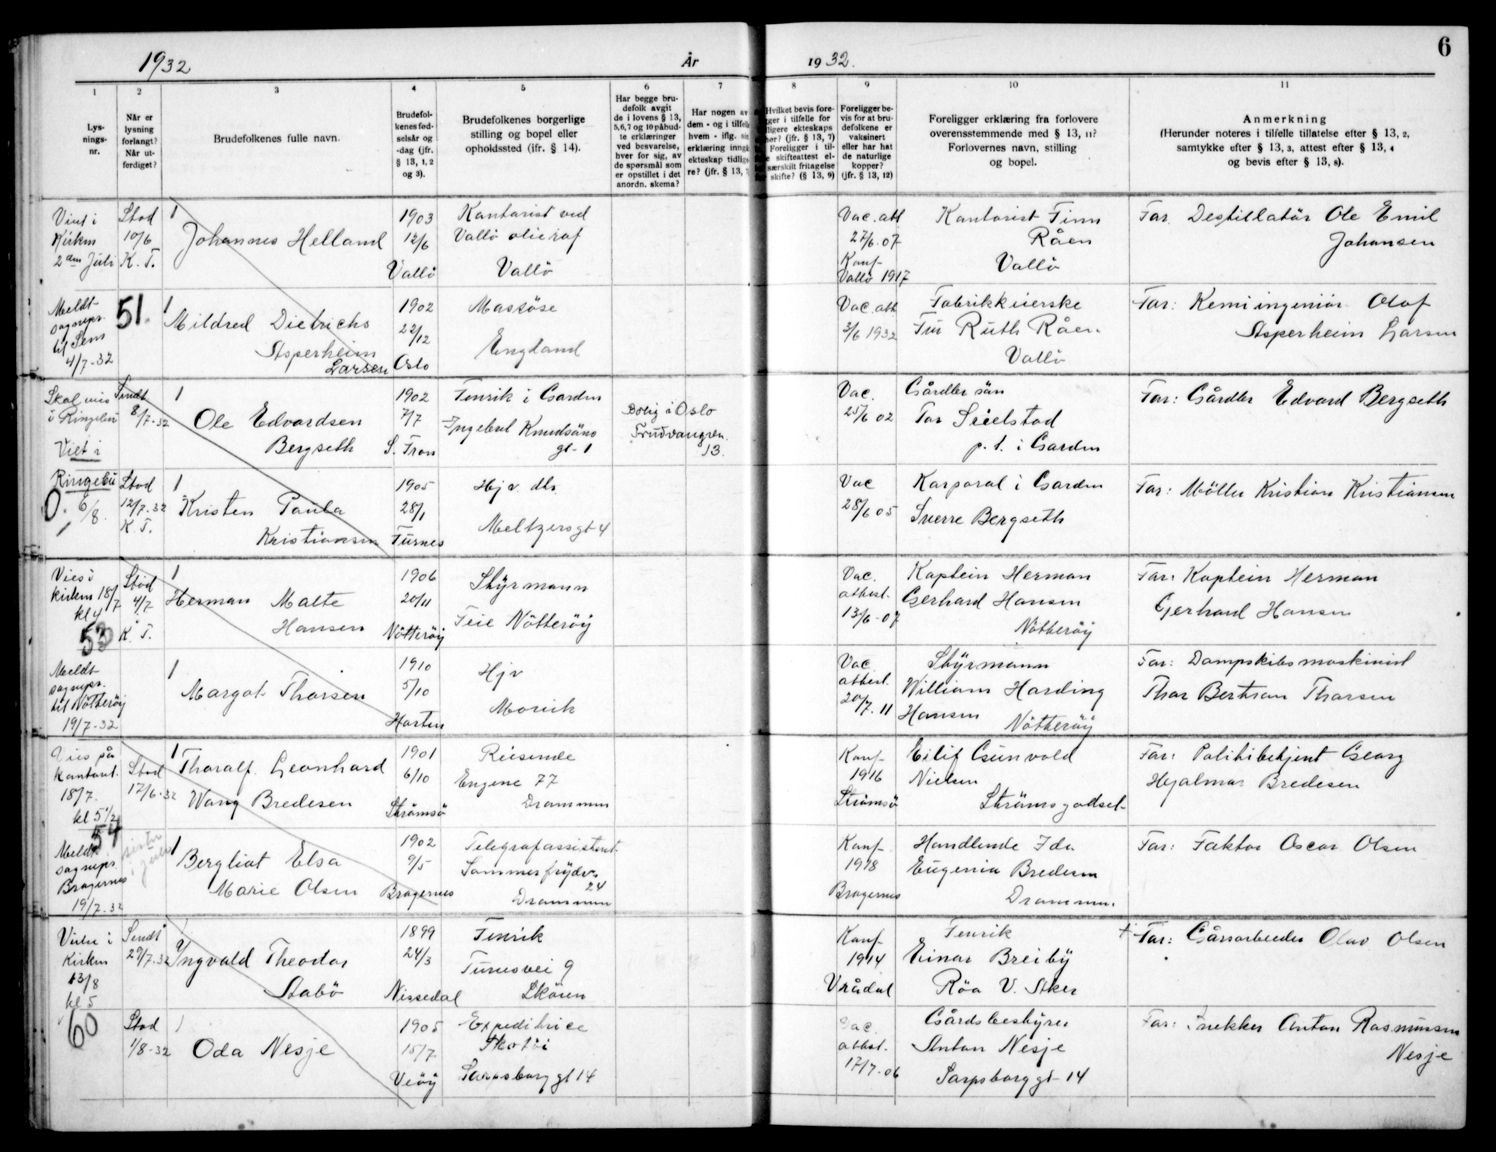 1932
År
1932.
6
1
2
3
4
5
6
7
8
9
10
11
Lys-
nings-
nr.
Når er
lysning
forlangt?
Når ut-
ferdiget?
Brudefolkenes fulle navn.
Brudefol-
kenes fød-
selsår og
-dag (jfr.
§ 13, 1, 2
og 3).
Brudefolkenes borgerlige
stilling og bopel eller
opholdssted (ifr. § 14).
Har begge bru-
defolk avgit
de i lovens § 13,
5, 6, 7 og 10 påbud-
te erklæringer
ved besvarelse,
hver for sig, av
de spørsmål som
er opstillet i det
anordn. skema?
Har nogen av
dem - og i tilfelle
hvem - iflg.
erklæring inngått
ekteskap tidlige-
re? (jfr. § 13,
Hvilket bevis fore-
ger i tilfelle for
ligere ekteskaps
hør? (jfr. § 13, 7)
Foreligger i til-
e skifteattest el-
særskilt fritagelse
skifte? (§ 13, 9)
Foreligger be-
vis for at bru-
defolkene er
vaksinert
eller har hat
de naturlige
kopper?
(jfr. § 13, 12)
Foreligger erklæring fra forlovere
overensstemmende med § 13, 11?
Forlovernes navn, stilling
og bopel.
Anmerkning
(Herunder noteres i tilfelle tillatelse efter § 13, 2,
samtykke efter § 13, 3, attest efter § 13, 4
og bevis efter § 13, 8).
Viet i
Kirken
2den Juli
Stod
10/6
K. T.
1
Johannes Helland
1903
12/6
Vallö
Kontorist ved
Vallö olieraf
Vallö
Vac. att
27/6. 07
Konf
Vallö 1917
Kontorist Finn
Råen
Vallö
Far Destillatör Ole Emil
Johansen
Meldt
sognepr.
til Sem
4/7-32
51.
1
Mildred Dietrichs
Asperheim
Larsen
1902
22/12
Oslo
Massöse
England
Vac. att
3/6 1932
Fabrikkeierske
Fru Ruth Råen
Vallö
Far: Kemiingeniör Olaf
Asperheim Larsen
Skal vies
i Ringebu
Viet i
Ringebu
6/8.
0.
Sendt
8/7-32
1
Ole Edvardsen
Bergseth
1902
7/7
S. Fron
Fenrik i Garden
Ingebret Knudsöns
gt. 1
Bolig i Oslo
Frudvangvn.
13.
Vac.
25/6 02
Gårdbr sön
Tor
p. t. i Garden
Far: Gårdbr Edvard Bergseth
Stod
12/7-32
K. T.
1
Kristen Paula
Kristiansen
1905
28/1
Furnes
Hjv. dtr
Meltzersgt 4
Vac
28/6 05
Korporal i Garden
Sverre Bergseth
Far: Möller Kristian Kristiansen
Vies i
kirken 18/7
kl 4
53
Stod
4/7
K. T.
1
Herman Malte
Hansen
1906
20/11
Nötteröy
Styrmann
Teie Nötteröy
Vac.
attest.
13/6-07
Kaptein Herman
Gerhard Hansen
Nötteröy
Far: Kaptein Herman
Gerhard Hansen
Meldt
sognepr.
til Nötteröy
19/7-32
1
Margot Thorsen
1910
5/10
Horten
Hjv
Vac
attest.
20/7. 11
Styrmann
William Harding
Hansen Nötteröy
Far: Dampskibsmaskinist
Thor Bertram Thorsen
Vies på
kontoret
18/7.
kl 5 1/2
54
Stod
17/6-32
1
Thoralf Leonhard
Wang Bredesen
1901
6/10
Strömsö
Reisende
Engene 77
Drammen
Konf
1916
Strömsö
Eilif Gunvald
Nielsen
Strömsgodset
Far: Politibetjent Georg
Hjalmar Bredesen
Meldt
sognepr
Bragernes
19/7-32
1
Bergliot Elsa
Marie Olsen
1902
9/5
Bragernes
Telegrafassistent
Sommerfrydvn.
24
Drammen
Konf
1918
Bragernes
Handlende Ida
Eugenia Bredesen
Drammen.
Far: Faktor Oscar Olsen
Viet i
Kirken
13/8
kl 5
Sendt
29/7-32
1
Yngvald Theodor
Stabö
1899
24/3
Nissedal
Fenrik
Furusvei 9
Sköien
Konf
1914
Vrådal
Fenrik
Einar Breiby
Röa V. Aker
+ Far: Gårsarbeider Olav Olsen
60
Stod
1/8-32
1
Oda Nesje
1905
15/7
Veöy
Expeditrice
Sarpsborggt 14
Vac.
attest.
17/7-06
Gårdsbestyrer
Anton Nesje
Sarpsborggt 14
Far: Snekker Anton Rasmussen
Nesje